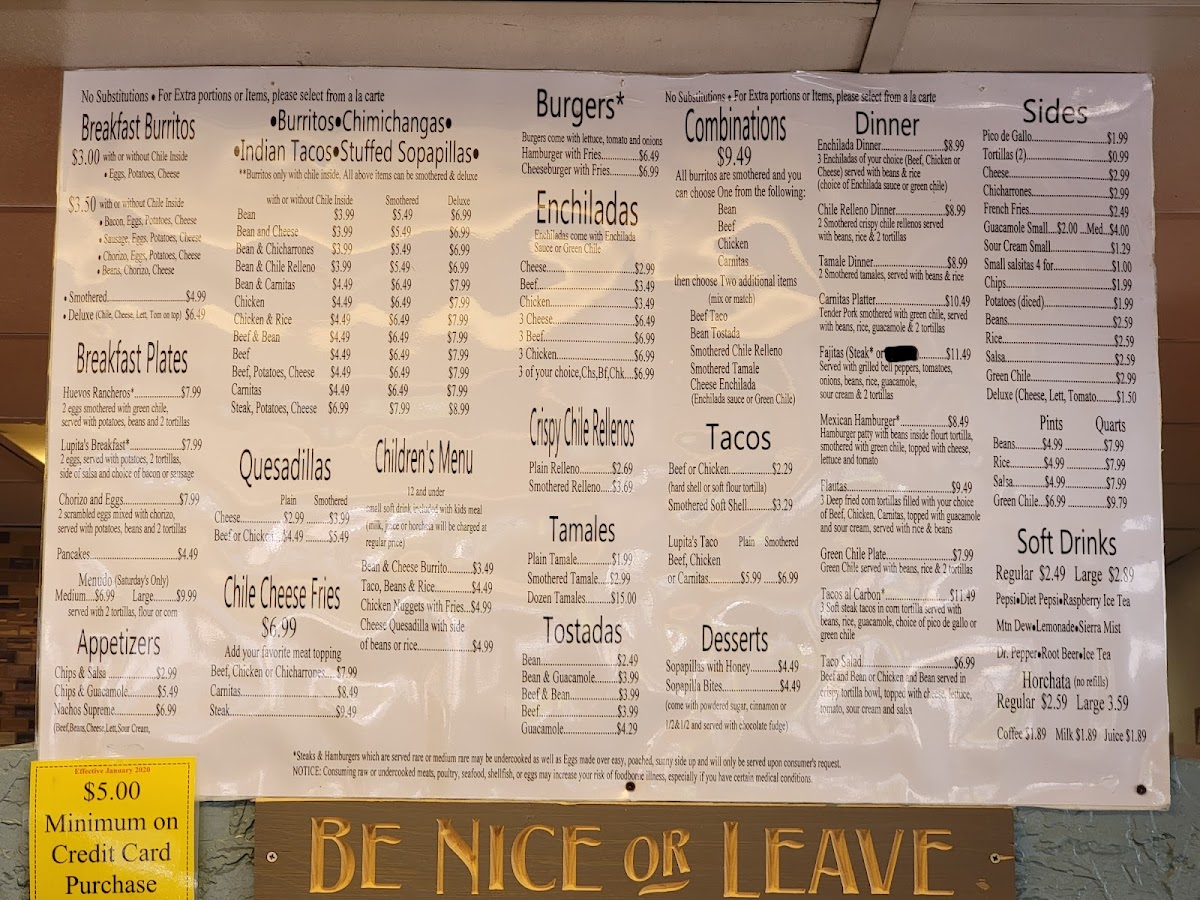 No Substitutions • For Extra portions or Items, please select from a la carte
Breakfast Burritos
$3.00 with or without Chile Inside
• Eggs, Potatoes, Cheese
$3.50 with or without Chile Inside
• Bacon, Eggs, Potatoes, Cheese
• Sausage, Eggs, Potatoes, Cheese
• Chorizo, Eggs, Potatoes, Cheese
• Beans, Chorizo, Cheese
• Smothered $4.99
• Deluxe (Chile, Cheese, Lett, Tom on top) $6.49
Breakfast Plates
Huevos Rancheros* $7.99
2 eggs smothered with green chile,
served with potatoes, beans and 2 tortillas
Lupita's Breakfast* $7.99
2 eggs, served with potatoes, 2 tortillas,
side of salsa and choice of bacon or sausage
Chorizo and Eggs $7.99
2 scrambled eggs mixed with chorizo,
served with potatoes, beans and 2 tortillas
Pancakes $4.49
Menudo (Saturday's Only)
Medium...$6.99 Large...$9.99
served with 2 tortillas, flour or corn
Appetizers
Chips & Salsa $2.99
Chips & Guacamole $5.49
Nachos Supreme $6.99
(Beef,Beans,Cheese,Lett,Sour Cream,
•Burritos•Chimichangas•
•Indian Tacos•Stuffed Sopapillas•
**Burritos only with chile inside, All above items can be smothered & deluxe
with or without Chile Inside Smothered Deluxe
Bean $3.99 $5.49 $6.99
Bean and Cheese $3.99 $5.49 $6.99
Bean & Chicharrones $3.99 $5.49 $6.99
Bean & Chile Relleno $3.99 $5.49 $6.99
Bean & Carnitas $4.49 $6.49 $7.99
Chicken $4.49 $6.49 $7.99
Chicken & Rice $4.49 $6.49 $7.99
Beef & Bean $4.49 $6.49 $7.99
Beef $4.49 $6.49 $7.99
Beef, Potatoes, Cheese $4.49 $6.49 $7.99
Carnitas $4.49 $6.49 $7.99
Steak, Potatoes, Cheese $6.99 $7.99 $8.99
Quesadillas
Plain Smothered
Cheese $2.99 $3.99
Beef or Chicken $4.49 $5.49
Chile Cheese Fries
$6.99
Add your favorite meat topping
Beef, Chicken or Chicharrones $7.99
Carnitas $8.49
Steak $9.49
Children's Menu
12 and under
small soft drink included with kids meal
(milk, juice or horchata will be charged at
regular price)
Bean & Cheese Burrito $3.49
Taco, Beans & Rice $4.49
Chicken Nuggets with Fries $4.99
Cheese Quesadilla with side
of beans or rice $4.99
Burgers*
Burgers come with lettuce, tomato and onions
Hamburger with Fries $6.49
Cheeseburger with Fries $6.99
Enchiladas
Enchiladas come with Enchilada
Sauce or Green Chile
Cheese $2.99
Beef $3.49
Chicken $3.49
3 Cheese $6.49
3 Beef $6.99
3 Chicken $6.99
3 of your choice,Chs,Bf,Chk $6.99
Crispy Chile Rellenos
Plain Relleno $2.69
Smothered Relleno $3.69
Tamales
Plain Tamale $1.99
Smothered Tamale $2.99
Dozen Tamales $15.00
Tostadas
Bean $2.49
Bean & Guacamole $3.99
Beef & Bean $3.99
Beef $3.99
Guacamole $4.29
No Substitutions • For Extra portions or Items, please select from a la carte
Combinations
$9.49
All burritos are smothered and you
can choose One from the following:
Bean
Beef
Chicken
Carnitas
then choose Two additional items
(mix or match)
Beef Taco
Bean Tostada
Smothered Chile Relleno
Smothered Tamale
Cheese Enchilada
(Enchilada sauce or Green Chile)
Tacos
Beef or Chicken $2.29
(hard shell or soft flour tortilla)
Smothered Soft Shell $3.29
Lupita's Taco Plain Smothered
Beef, Chicken
or Carnitas $5.99 $6.99
Desserts
Sopapillas with Honey $4.49
Sopapilla Bites $4.49
(come with powdered sugar, cinnamon or
1/2&1/2 and served with chocolate fudge)
Dinner
Enchilada Dinner $8.99
3 Enchiladas of your choice (Beef, Chicken or
Cheese) served with beans & rice
(choice of Enchilada sauce or green chile)
Chile Relleno Dinner $8.99
2 Smothered crispy chile rellenos served
with beans, rice & 2 tortillas
Tamale Dinner $8.99
2 Smothered tamales, served with beans & rice
Carnitas Platter $10.49
Tender Pork smothered with green chile, served
with beans, rice, guacamole & 2 tortillas
Fajitas (Steak* or $11.49
Served with grilled bell peppers, tomatoes,
onions, beans, rice, guacamole,
sour cream & 2 tortillas
Mexican Hamburger* $8.49
Hamburger patty with beans inside flourt tortilla,
smothered with green chile, topped with cheese,
lettuce and tomato
Flautas $9.49
3 Deep fried corn tortillas filled with your choice
of Beef, Chicken, Carnitas, topped with guacamole
and sour cream, served with rice & beans
Green Chile Plate $7.99
Green Chile served with beans, rice & 2 tortillas
Tacos al Carbon* $11.49
3 Soft steak tacos in corn tortilla served with
beans, rice, guacamole, choice of pico de gallo or
green chile
Taco Salad $6.99
Beef and Bean or Chicken and Bean served in
crispy tortilla bowl, topped with cheese, lettuce,
tomato, sour cream and salsa
Sides
Pico de Gallo $1.99
Tortillas (2) $0.99
Cheese $2.99
Chicharrones $2.99
French Fries $2.49
Guacamole Small...$2.00 ...Med...$4.00
Sour Cream Small $1.29
Small salsitas 4 for $1.00
Chips $1.99
Potatoes (diced) $1.99
Beans $2.59
Rice $2.59
Salsa $2.59
Green Chile $2.99
Deluxe (Cheese, Lett, Tomato $1.50
Pints Quarts
Beans $4.99 $7.99
Rice $4.99 $7.99
Salsa $4.99 $7.99
Green Chile $6.99 $9.79
Soft Drinks
Regular $2.49 Large $2.89
Pepsi•Diet Pepsi•Raspberry Ice Tea
Mtn Dew•Lemonade•Sierra Mist
Dr. Pepper•Root Beer•Ice Tea
Horchata (no refills)
Regular $2.59 Large 3.59
Coffee $1.89 Milk $1.89 Juice $1.89
*Steaks & Hamburgers which are served rare or medium rare may be undercooked as well as Eggs made over easy, poached, sunny side up and will only be served upon consumer's request.
NOTICE: Consuming raw or undercooked meats, poultry, seafood, shellfish, or eggs may increase your risk of foodborne illness, especially if you have certain medical conditions.
Effective January 2020
$5.00
Minimum on
Credit Card
Purchase
BE NICE OR LEAVE